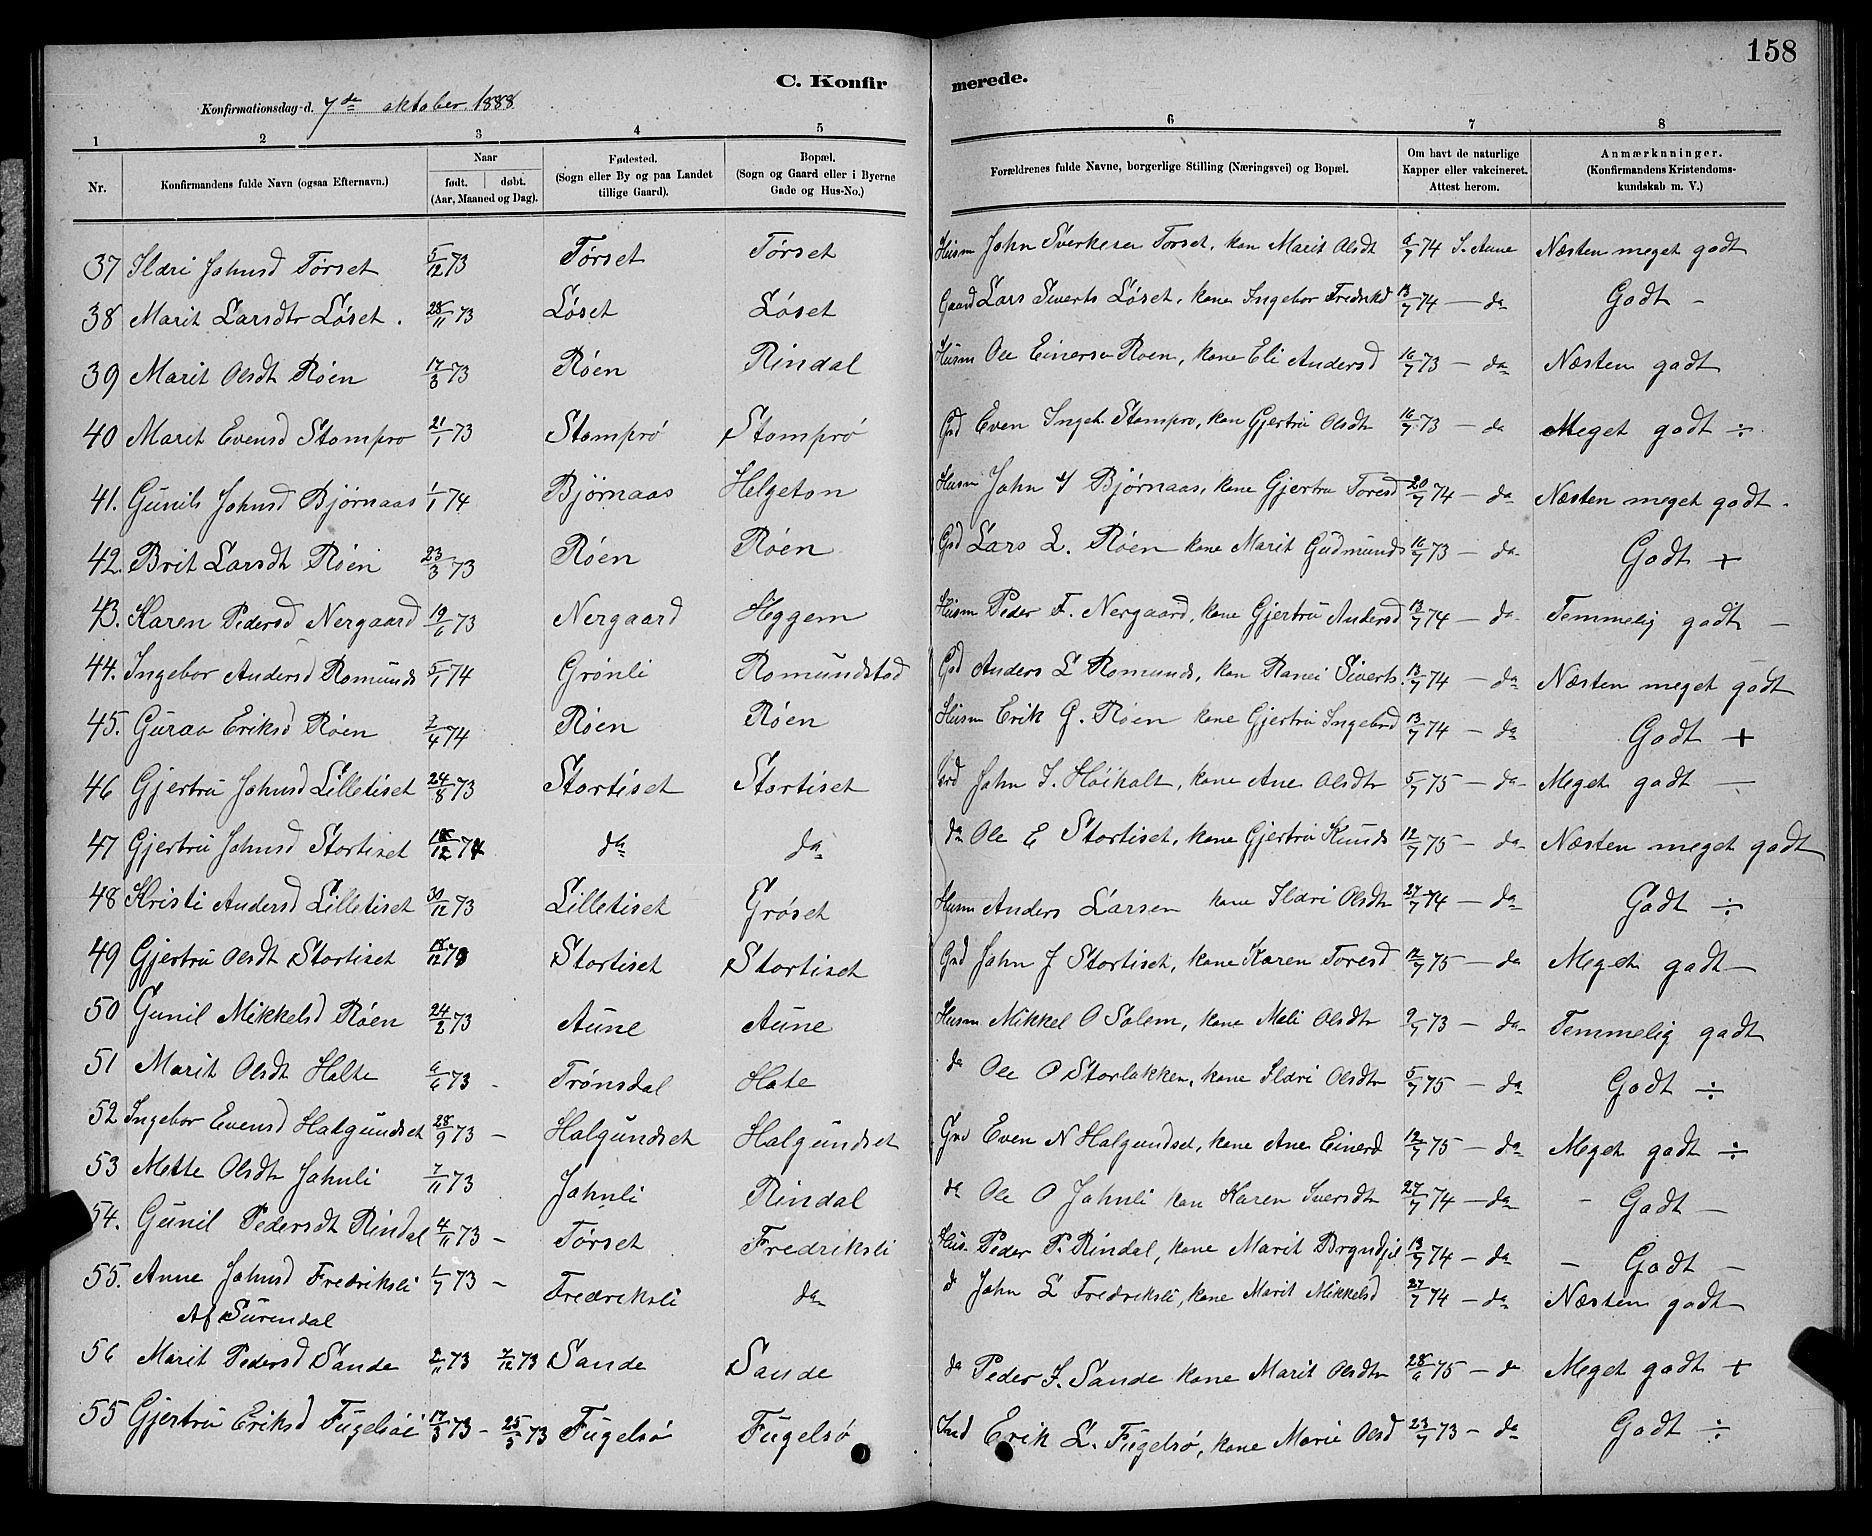 158
C. Konfirmerede.
Konfirmationsdag d. 7de oktober 1888
1 2 3 4 5 6 7 8
Nr. Konfirmandens fulde Navn (ogsaa Efternavn.) Naar født. døbt. (Aar, Maaned og Dag). Fødested. (Sogn eller By og paa Landet tillige Gaard). Bopæl. (Sogn og Gaard eller i Byerne Gade og Hus-No.) Forældrenes fulde Navne, borgerlige Stilling (Næringsvei) og Bopæl. Om havt de naturlige Kapper eller vakcineret. Attest herom. Anmærknninger. (Konfirmandens Kristendoms-kundskab m. V.)
37 Ildri Johnsd Tørset 5/12 73 Tørset Tørset Husm John Sverkesen Torset, kon Marit Olsdt 9/7 74 S. Aune Næsten meget godt
38 Marit Larsdtr Løset. 28/11 73 Løset Løset Gaard Lars Siverts Løset, kone Ingebor Fredrikd 13/7 74 — do Godt -
39 Marit Olsdt Röen 17/3 73 Röen Rindal Husm Ole Einersen Roen, kone Eli Andersd 16/7 73 — do Næsten godt
40 Marit Evensd Stompro 21/1 73 Stomprø Stomprø Grd Even Ingeb. Stompro, kon Gjertru Olsdtr 16/7 73 — do Meget godt ÷
41. Gunil Johnsd Bjørnaas 1/1 74 Björnaas Helgeton Husm John Bjørnaas, kone Gjertru Toresd 20/7 74 — do Næsten meget godt -
42. Brit Larsdt Röen 23/3 73 Röen Röen Grd Lars L. Röen kone Marit Gudmunds 16/7 73 — do Godt +
43. Karen Pedersd Nergaard 19/6 73 Nergaard Heggem Husm Peder F. Nergaard, kone Gjertru Andersd 13/7 74 — do Temmelig godt —
44. Ingebor Andersd Romunds 5/1 74 Grönli Romundstad Grd Anders L Romunds, kon Ranei Siverts. 13/7 74 — do Næsten meget godt
45. Guraa Eriksd Röen 2/4 74 Röen Röen Husm Erik G. Röen kone Gjertru Ingebrd 13/7 74 — do Godt +
46 Gjertru Johnsd Lilletiset 24/8 73 Stortiset Stortiset Grd John I. Høikalt, kone Ane Olsdtr 5/7 75 — do Meget godt —
47 Gjertru Johnsd Stortiset 18/12 74 do do do Ole E Stortiset, kone Gjertru Kunds 12/7 75 — do Næsten meget godt
48 Kristi Andersd Lilletiset 30/12 73 Lilletiset Grøset Husm Anders Larsen kone Ildri Olsdtr 27/7 74 — do Godt ÷
49 Gjertru Olsdt Stortiset 18/12 73 Stortiset Stortiset Grd John J Stortiset, kone Karen Toresd 12/7 75 — do Meget godt —
50 Gunil Mikkelsd Röen 24/2 73 Aune Aune Husm Mikkel O Solem, kone Mali Olsdtr 9/7 73 — do Temmelig godt
51 Marit Olsdt Holte 6/6 73 - Trönsdal Hote do Ole O Storløkken, kone Ildri Olsdtr 5/7 75 — do Godt ÷
52 Ingebor Evensd Halgundset 28/9 73 — Halgundset Halgundset Grd Even N Halgundset, kone Ane Einersd 12/7 75 — do Meget godt ÷
53 Mette Olsdtr Johnli 7/11 73 Johnli Rindal do Ole O Johnli kon Karen Iversdtr 27/7 74 — do - Godt —
54. Gunil Pedersdt Rindal 4/11 73 - Törset Fredriksli Hus. Peder P. Rindal, kone Marit Bryndjel 13/7 74 — do - Godt —
55. Anne Johnsd Fredriksli 1/7 73 - Fredriksli do d John L Fredriksli, kone Marit Mikkelsd 27/7 74 — do Næsten godt
Af Surendal
56 Marit Pedersd Sande 2/11 73 7/12 73 Sande Sande do Peder I. Sande kone Marit Olsdtr 28/6 75 — do Meget godt +
55 Gjertru Eriksd Fugelsøi 17/3 73 - 25/5 73 Fugelsø Fugelsø Ind Erik L. Fugelsø, kone Marie Olsd 23/7 73 - do Godt ÷